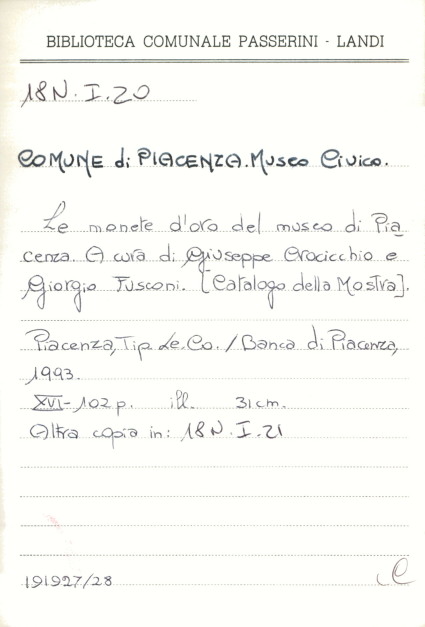 BIBLIOTECA COMUNALE PASSERINI - LANDI
18N.I.20
COMUNE di PIACENZA. Museo Civico.
Le monete d'oro del museo di Pia
cenza. A cura di Giuseppe Crocicchio e
Giorgio Fusconi. [Catalogo della Mostra].
Piacenza, Tip. Le.Co. / Banca di Piacenza,
1993.
XVI-102 p. ill. 31 cm.
Altra copia in: 18N.I.21
191927/28